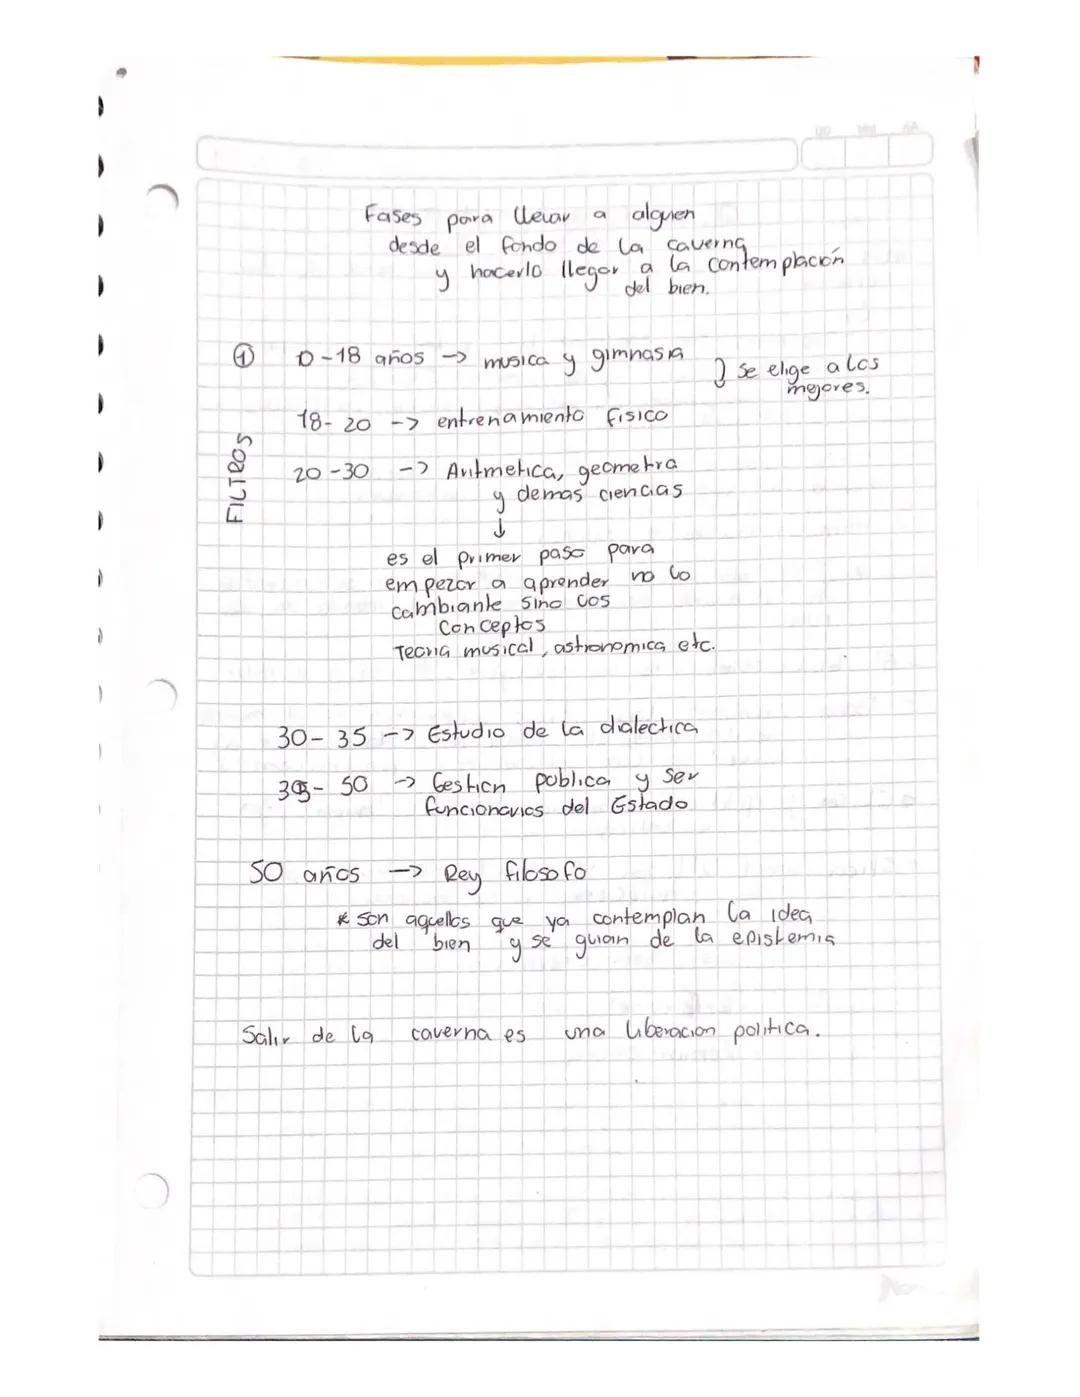 Fases para llevar a alguien
desde el fondo de la caverna
y hacerlo llegar a la contemplación
del bien.
① 0-18 años -> musica y gimnasia
se elige a los
mejores.
18-20 -> entrenamiento fisico
FILTROS
20-30 -> Aritmetica, geometria
y demas ciencias
↓
es el primer paso para
empezar a aprender no lo
cambiante sino los
conceptos
Teoria musical, astronomica etc.
30-35 -> Estudio de la dialectica
35-50 -> Gestion publica y ser
funcionarios del Estado
50 años -> Rey filosofo
* son aquellos que ya contemplan la idea
del bien y se guian de la epistemia
Salir de la caverna es una liberacion politica.